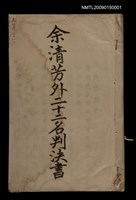 NMTL20090150001
余清芳外二十二名判決書